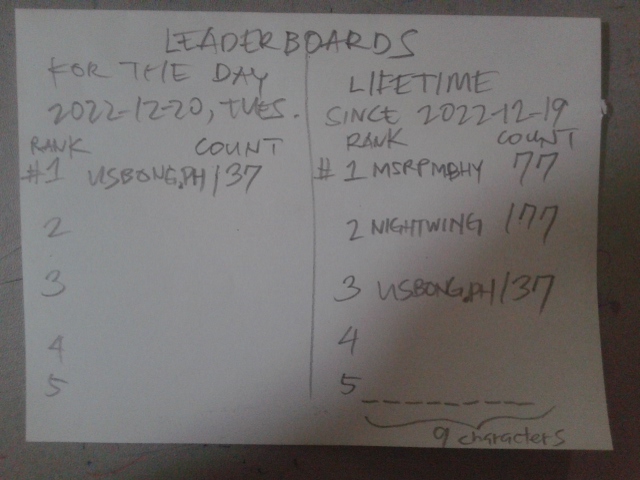 LEADERBOARDS
FOR THE DAY
2022-12-20, TUES.
RANK COUNT
#1 USBONG.PH 137
2
3
4
5
LIFETIME
SINCE 2022-12-19
RANK COUNT
#1 MSRPMBHY 77
2 NIGHTWING 177
3 USBONG.PH 137
4
5 _ _ _ _ _ _ _ _ _
9 characters